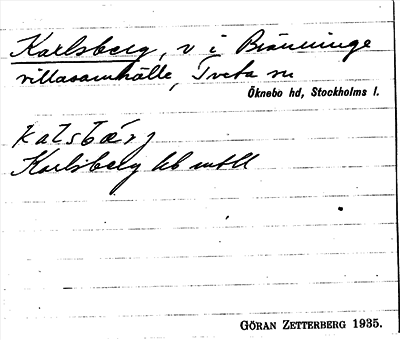 Karlsberg, v i Bränninge
villasamhälle, Tveta sn
Öknebo hd, Stockholms l.
kalsbärj
Karlsberg
GÖRAN ZETTERBERG 1935.